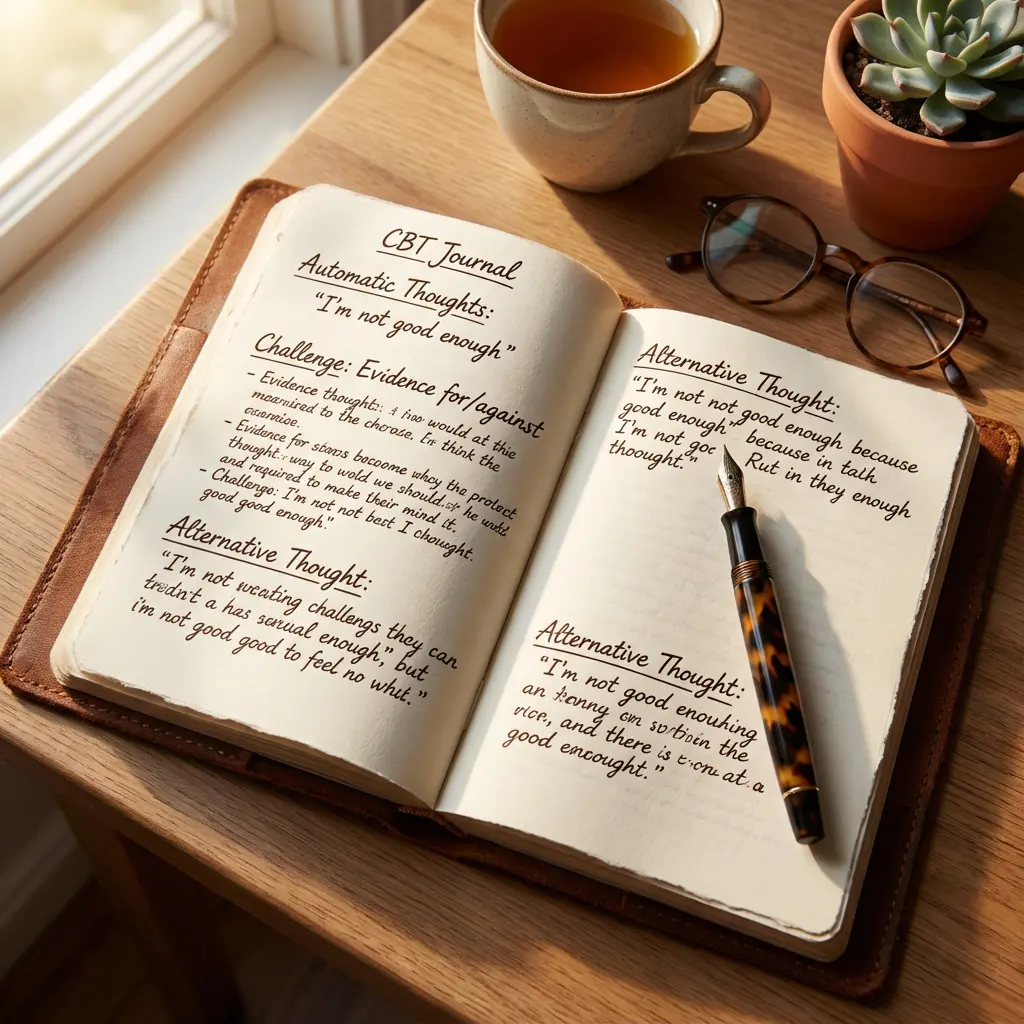 CBT Journal
Automatic Thoughts:
"I'm not good enough"
Challenge: Evidence for/against
- Evidence thoughts: a would at this
to the choose. think the
- Evidence for become why the protect
thought: way to wold we should he
and required to make their mind it.
- Challenge: I'm not not best I chought.
good good enough."
Alternative Thought:
"I'm not challengs they can
a has enough," but
i'm not good good to feel no whit."
Alternative Thought:
"I'm not not good enough because
good enough" because in talk
I'm not Rut in they enough
thoought."
Alternative Thought:
"I'm not good enouhing
an the
and there is at a
good encought."